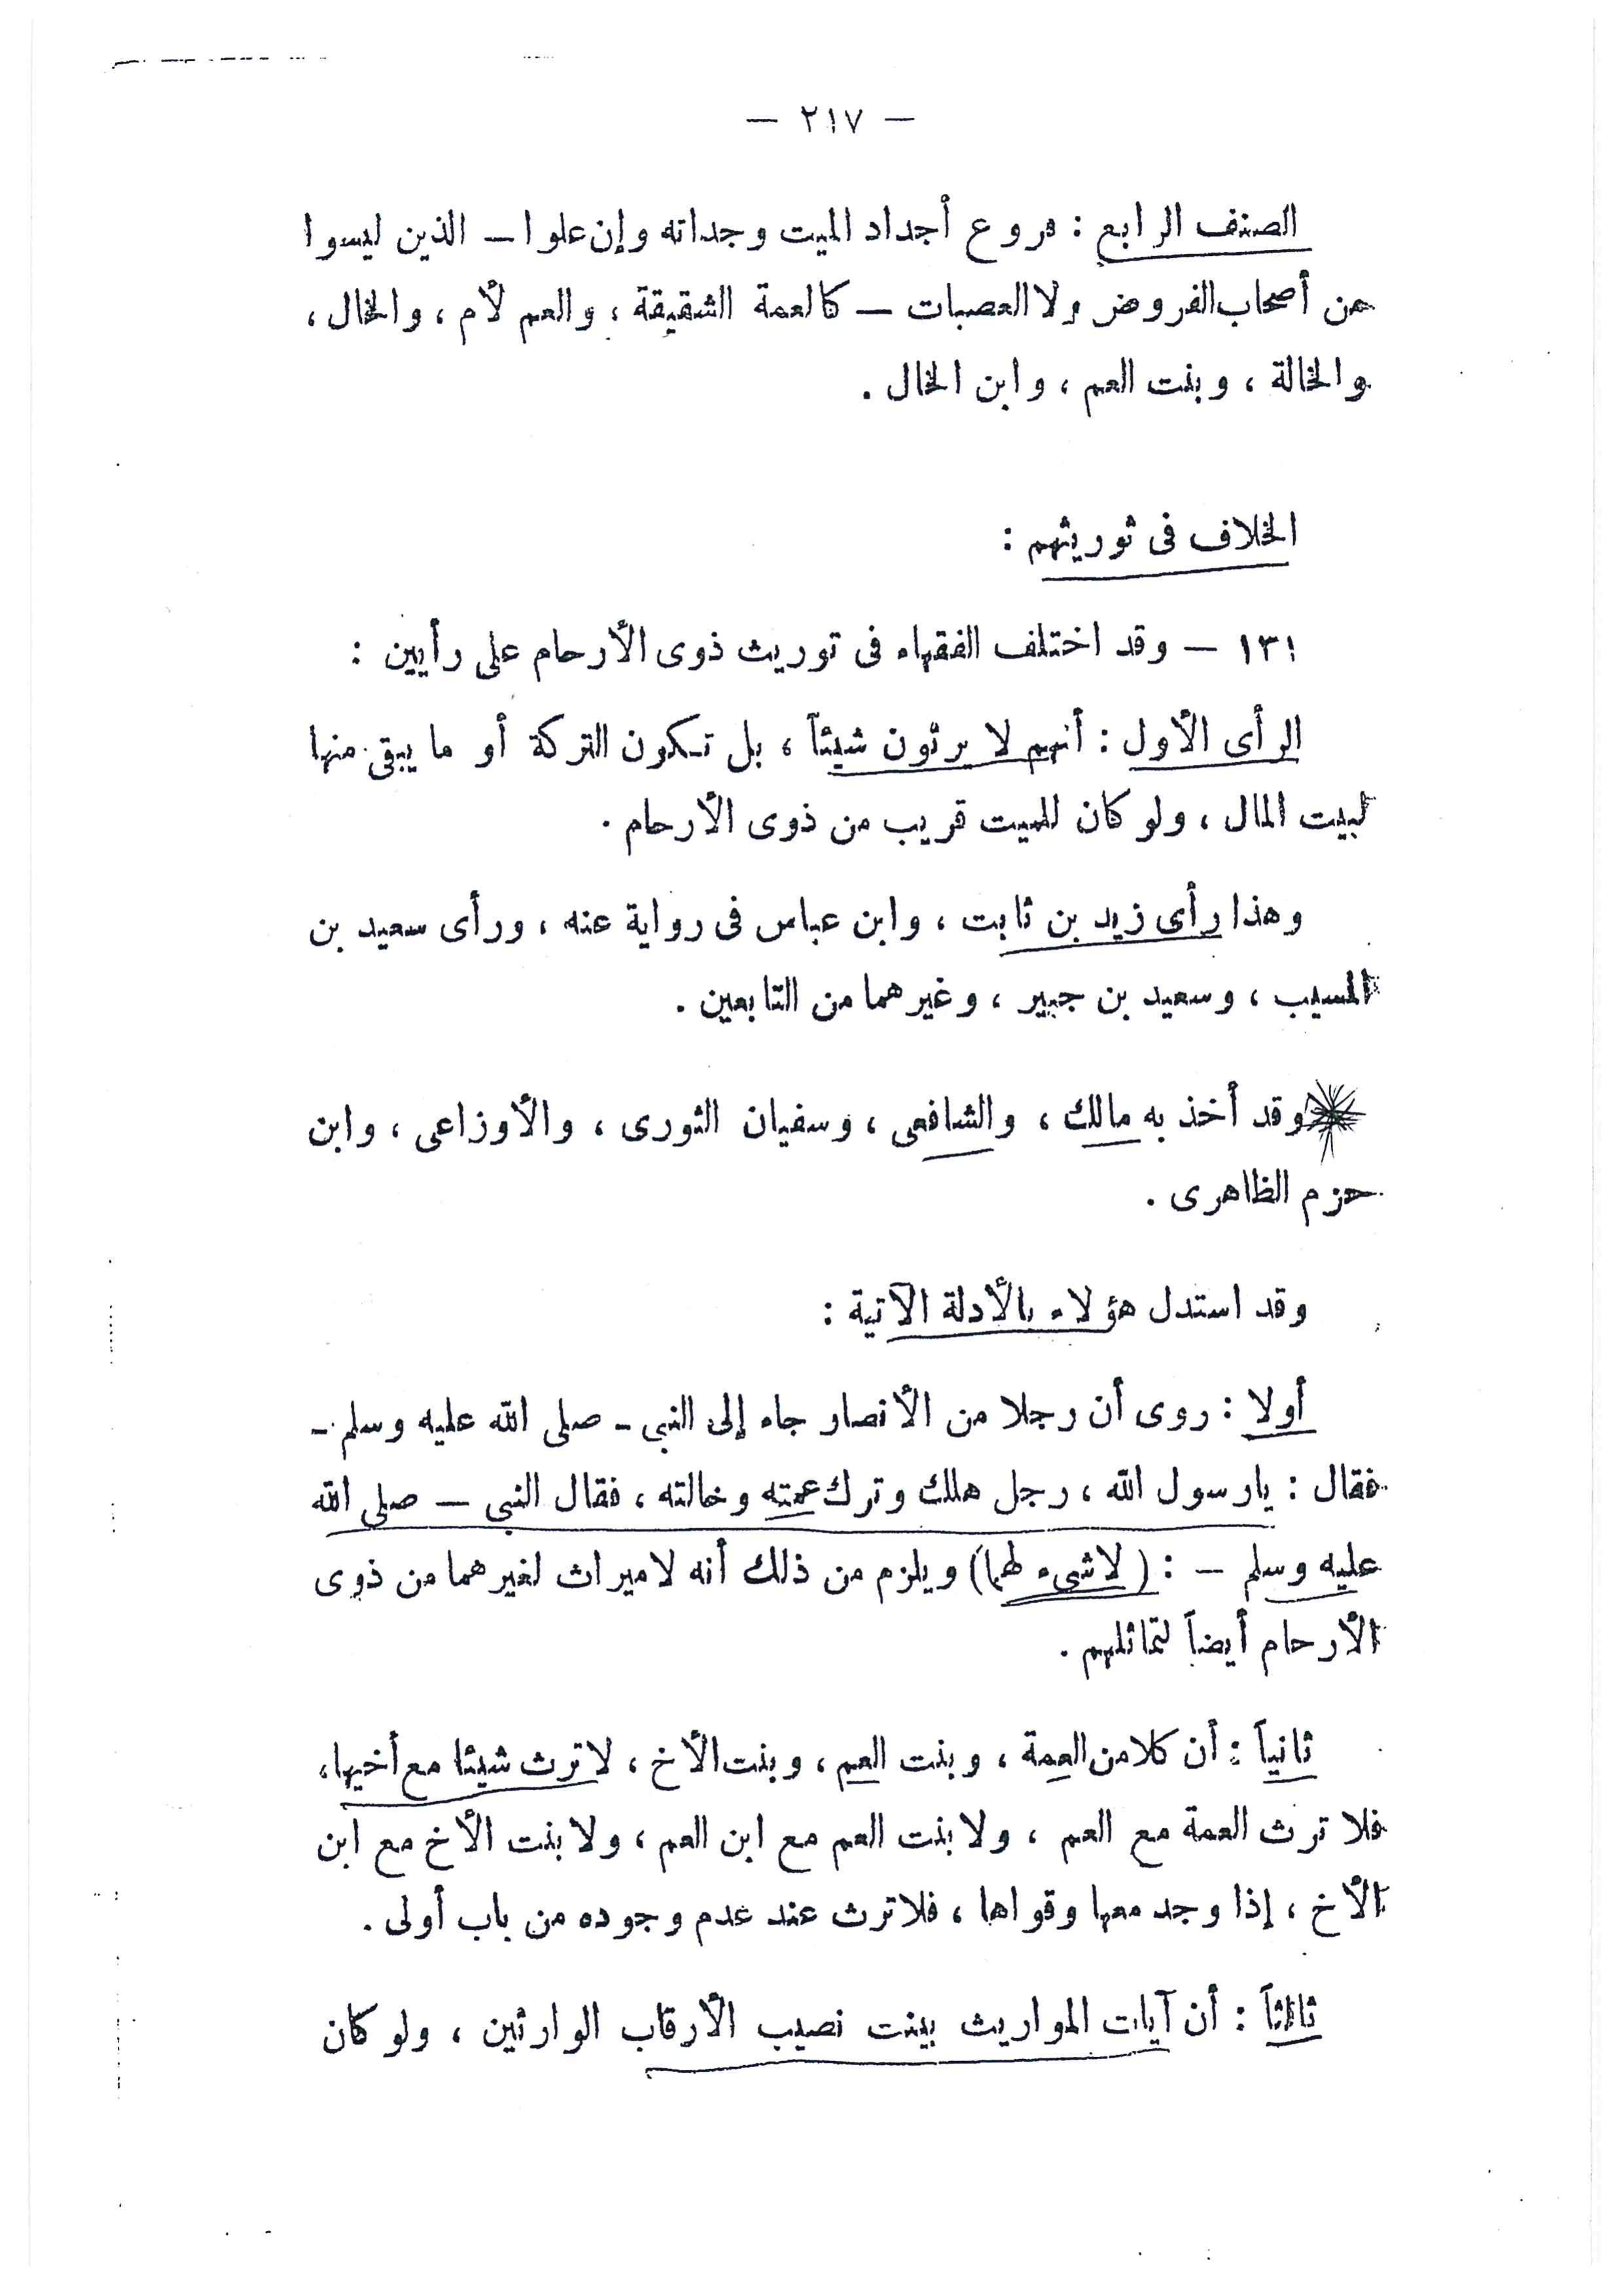 — ٢١٧ —
الصنف الرابع : فروع أجداد الميت وجداته وإن علوا — الذين ليسوا
من أصحاب الفروض ولا العصبات — كالعمة الشقيقة ، والعم لأم ، والخال ،
والخالة ، وبنت العم ، وابن الخال .
الخلاف فى توريثهم :
١٣١ — وقد اختلف الفقهاء فى توريث ذوى الأرحام على رأيين :
الرأى الأول : أنهم لا يرثون شيئاً ، بل تكون التركة أو ما يبقى منها
لبيت المال ، ولو كان للميت قريب من ذوى الأرحام .
وهذا رأى زيد بن ثابت ، وابن عباس فى رواية عنه ، ورأى سعيد بن
المسيب ، وسعيد بن جبير ، وغيرهما من التابعين .
وقد أخذ به مالك ، والشافعى ، وسفيان الثورى ، والأوزاعى ، وابن
حزم الظاهرى .
وقد استدل هؤلاء بالأدلة الآتية :
أولا : روى أن رجلا من الأنصار جاء إلى النبى - صلى الله عليه وسلم -
فقال : يارسول الله ، رجل هلك وترك عمته وخالته ، فقال النبى — صلى الله
عليه وسلم — : ( لاشىء لهما ) ويلزم من ذلك أنه لاميراث لغيرهما من ذوى
الأرحام أيضاً لتماثلهم .
ثانياً : أن كلا من العمة ، وبنت العم ، وبنت الأخ ، لاترث شيئا مع أخيها ،
فلا ترث العمة مع العم ، ولا بنت العم مع ابن العم ، ولا بنت الأخ مع ابن
الأخ ، إذا وجد معها وقواها ، فلا ترث عند عدم وجوده من باب أولى .
ثالثاً : أن آيات المواريث بينت نصيب الأرقاب الوارثين ، ولو كان